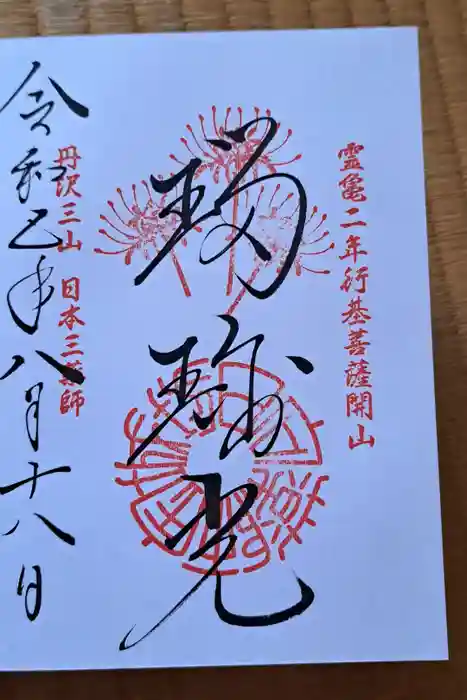 霊亀二年行基菩薩開山
瑠璃光
丹沢三山 日本三薬師
令和乙巳年八月十八日